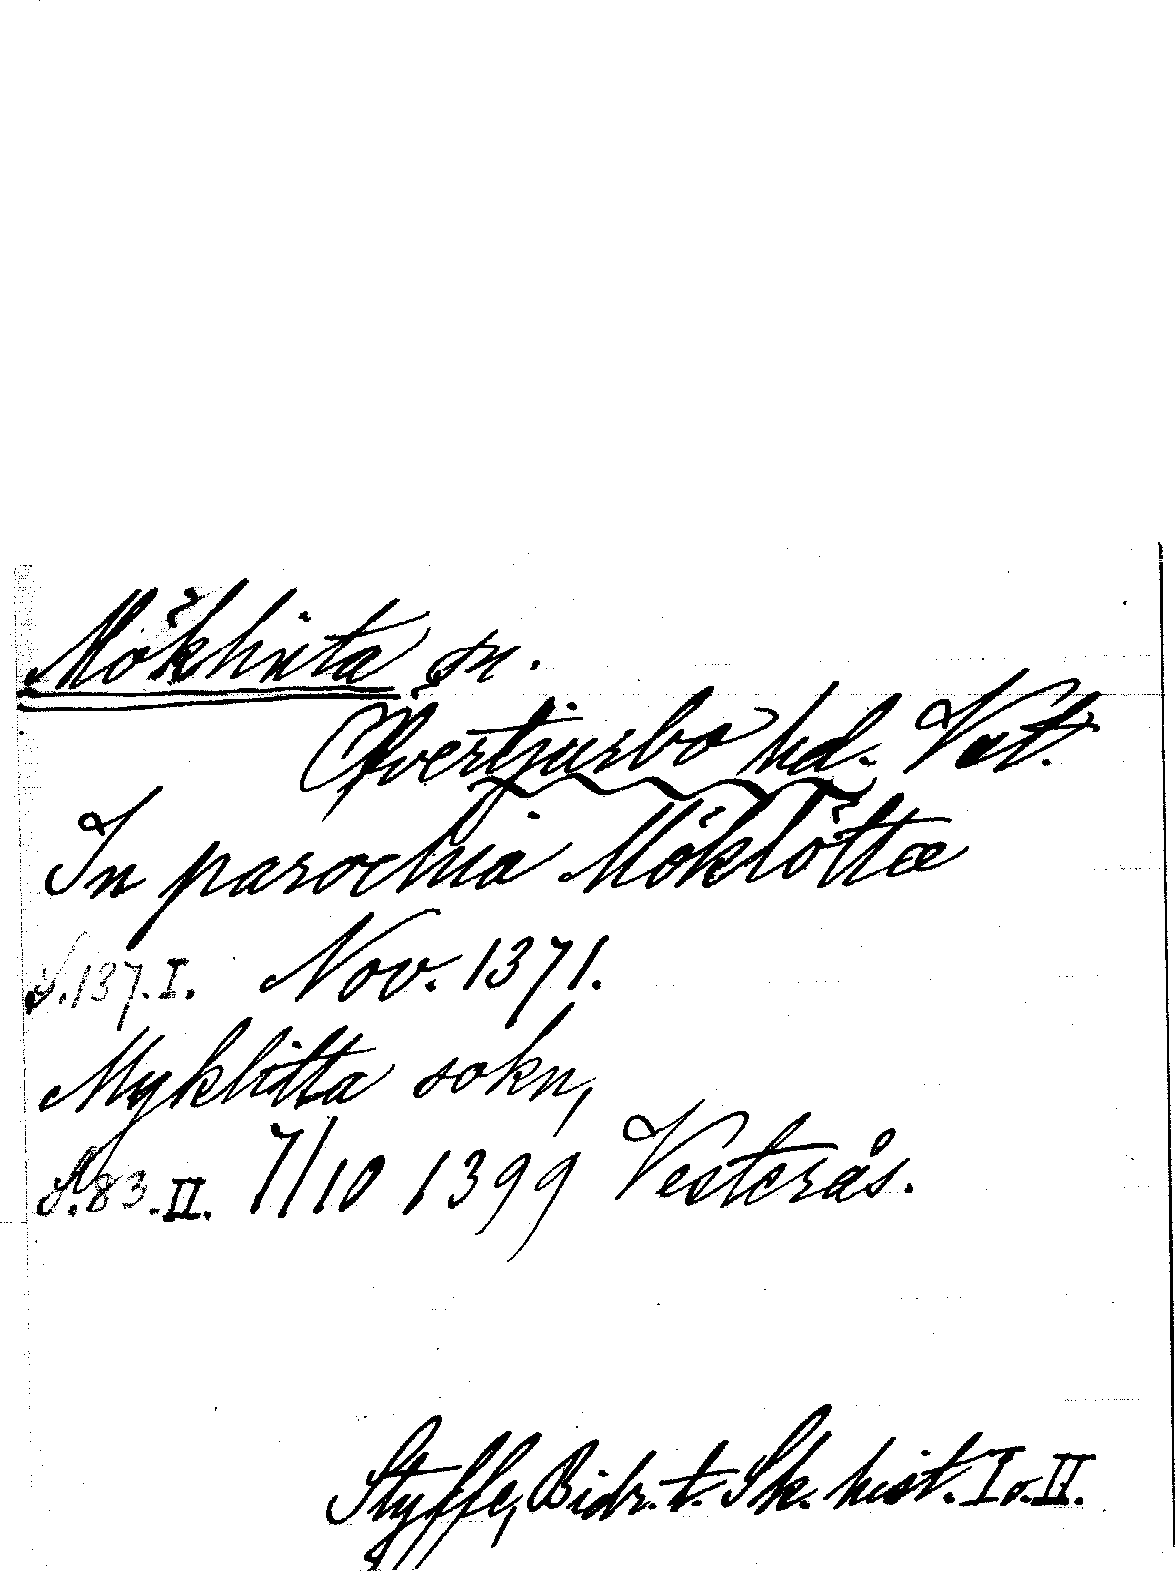 Möklinta sn.
Öfvertjurbo hd. Vstt.
In parochia Möklöttæ
S. 137. I. Nov. 1371.
Myklitta sokn,
S. 83. II. 7/10 1399 Vesterås.
Styffe, Bidr. t. Sk. hist. I o. II.